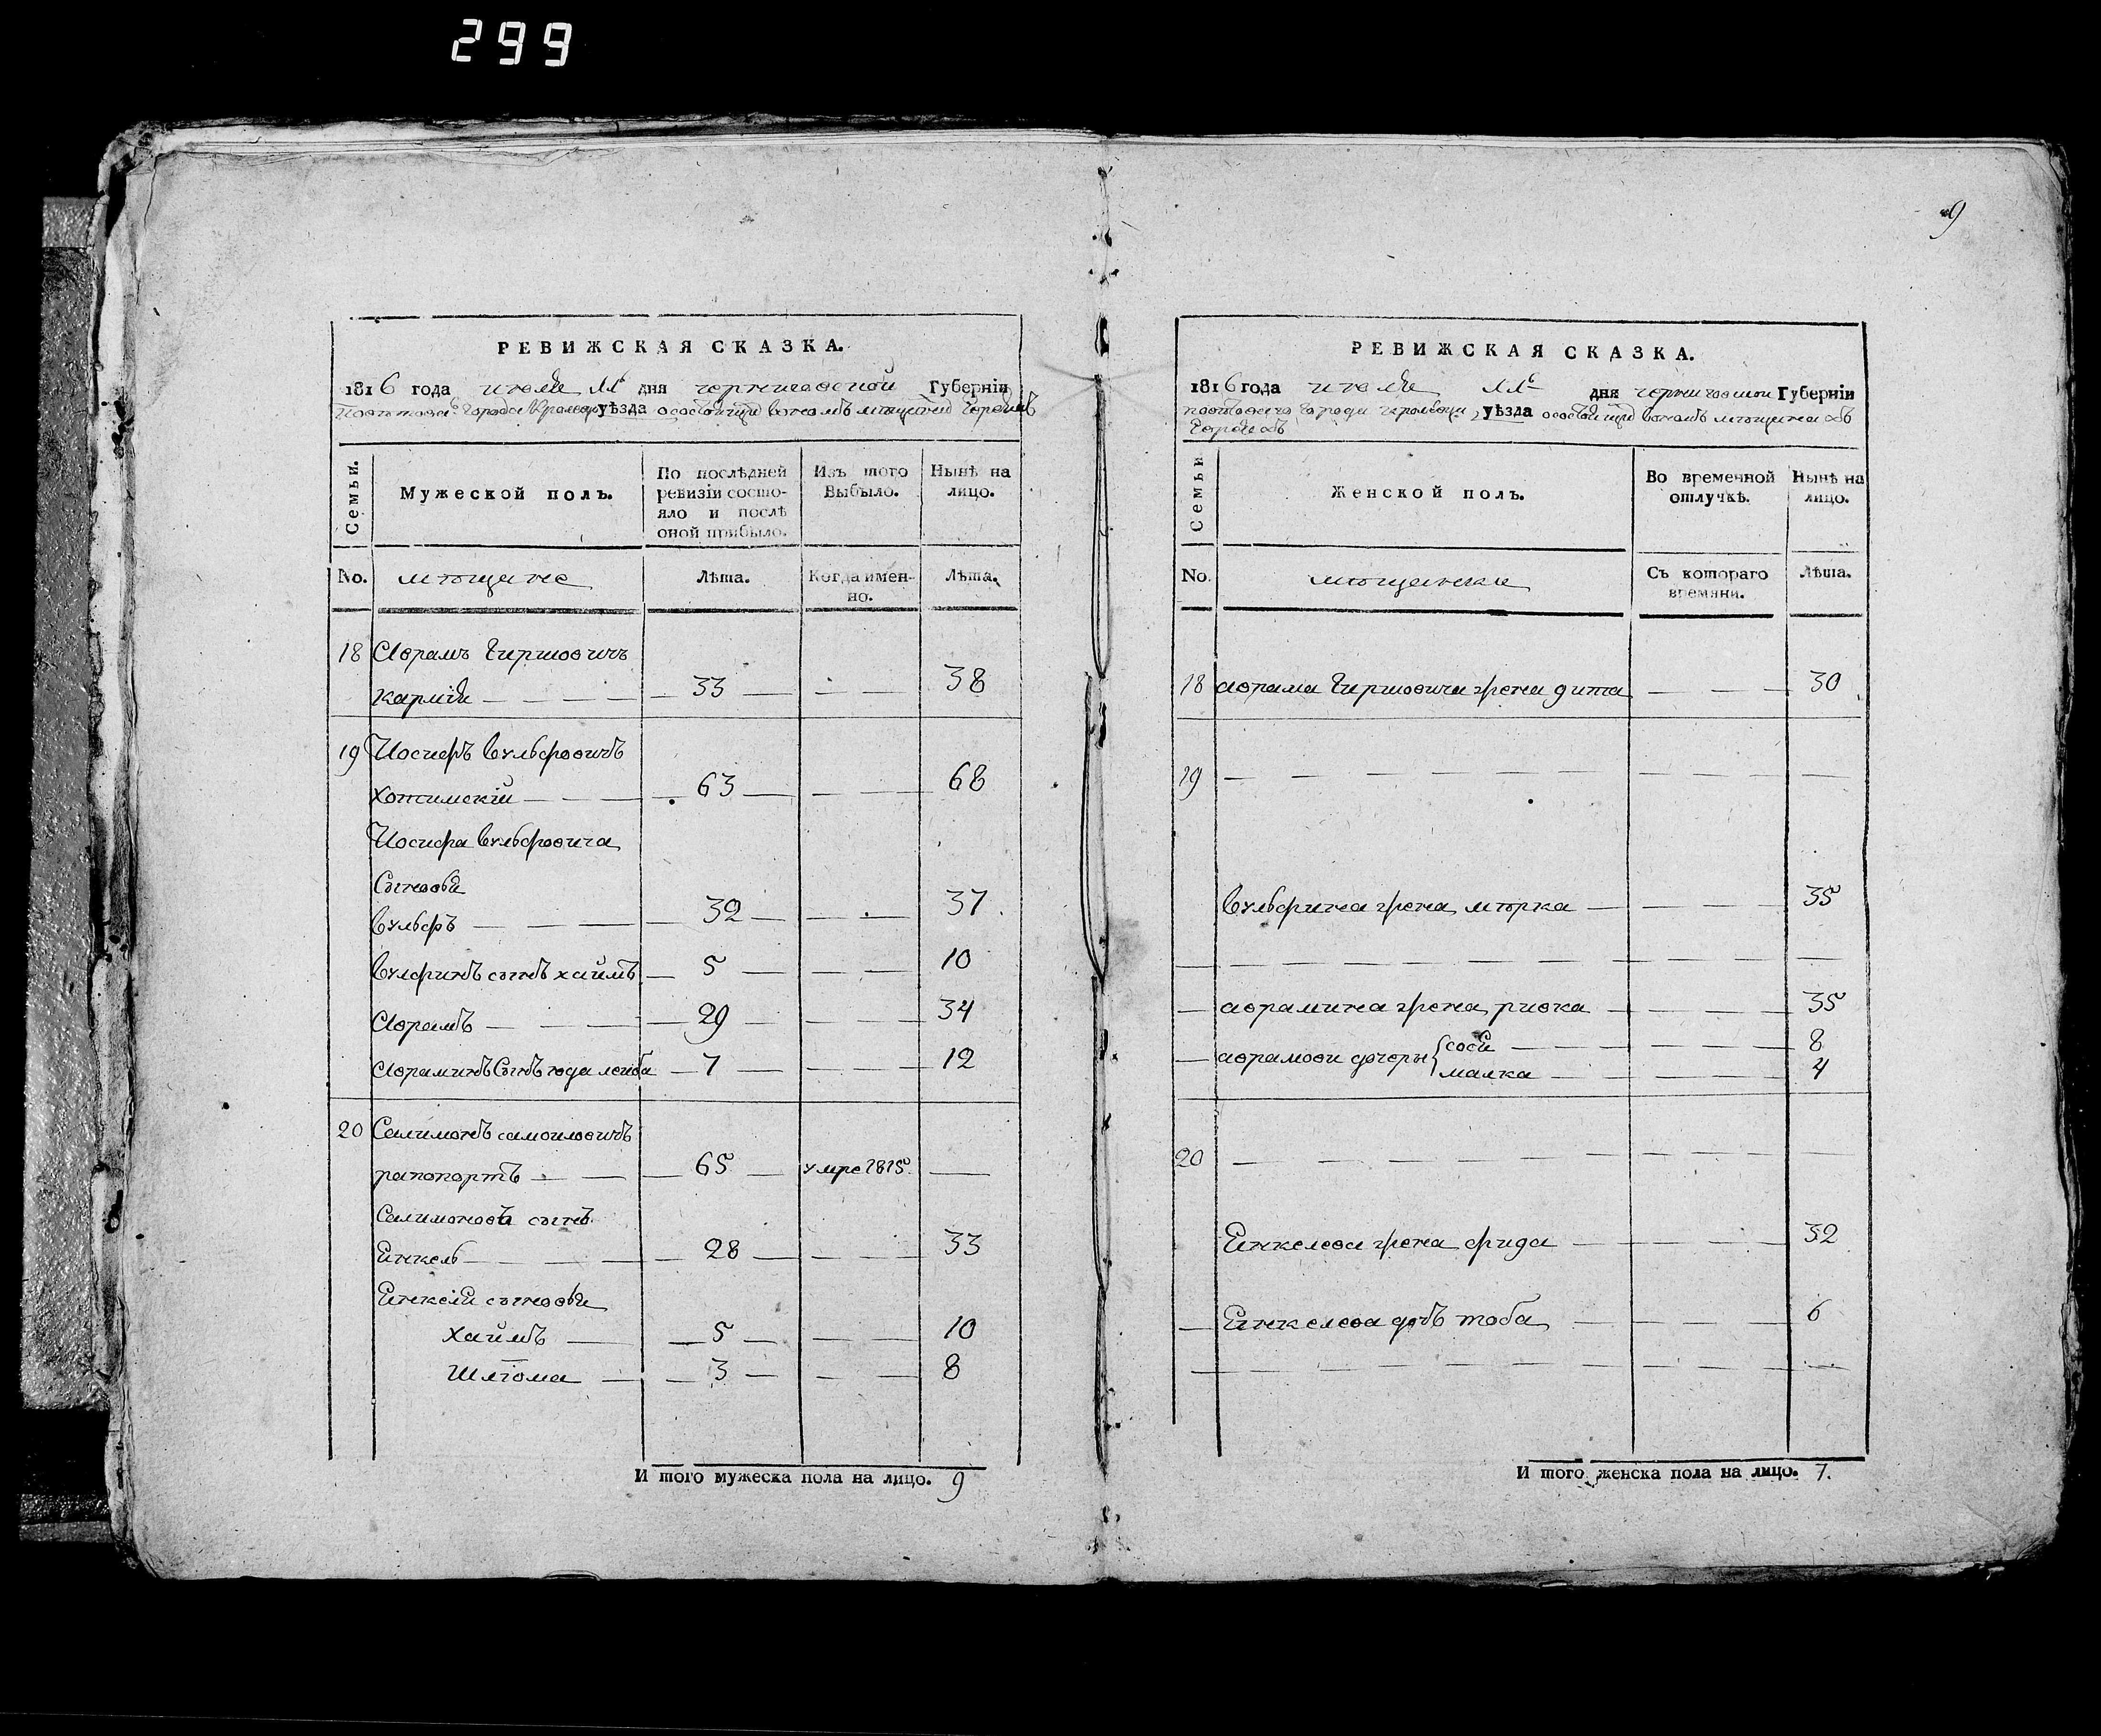 299
9
РЕВИЖСКАЯ СКАЗКА.
1816 года июля дня черниговской Губерніи
города уѣзда о состоящихъ въ томъ
Семьи.
Мужеской полъ.
По послѣдней ревизіи состо-
яло и послѣ
оной прибыло.
Изъ того
Выбыло.
Нынѣ на
лицо.
No. мѣщане Лѣта. Когда имен-
но. Лѣта.
18 Аврамъ Гиршовичъ
— 33 — — — 38
19 Иосифъ Вульфовичъ
хотимскій — — — 63 — — — 68
Иосифа Вульфовича
Сыновья
Вульфъ — — — 32 — — — 37
Вулфинъ сынъ хаимъ — 5 — — — 10
Аврамъ — — — 29 — — — 34
Авраминъ Сынъ лейба — 7 — — — 12
20 Салимонъ самоиловичъ
рапопортъ — — — 65 — умре 1815 —
Салимоновъ сынъ
Еинкель — — — 28 — — — 33
Еинкеля сыновья
хаимъ — — 5 — — — 10
Шліома — — 3 — — — 8
И того мужеска пола на лицо. 9
РЕВИЖСКАЯ СКАЗКА.
1816 года июля дня черниговской Губерніи
города уѣзда о состоящихъ въ томъ
Семьи
Женской полъ.
Во временной
отлучкѣ.
Нынѣ на
лицо.
No. мѣщанки Съ котораго
времяни. Лѣта.
18 аврама Гиршовича жена дита — — — 30
19 — — — — — —
Вульфина жена мѣрка — — — — 35
— — — — — —
— аврамина жена ривка — — — — 35
— аврамови дочеры { сося — — — — 8
малка — — — — 4
20 — — — — — —
Еинкелева жена фрида — — — — 32
— Еинкелева дочь тоба — — — — 6
— — — — — —
И того женска пола на лицо. 7.